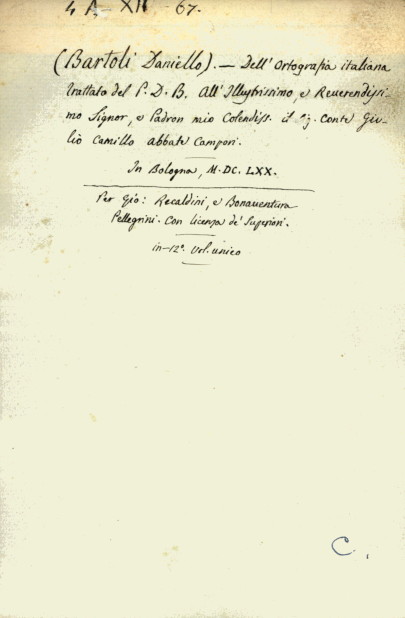 4 A, - XII - 67.
(Bartoli Daniello). — Dell' Ortografia italiana
trattato del P. D. B. All' Illustrissimo, e Reverendissi-
mo Signor, e Padron mio Colendiss. il Sig. Conte Giu-
lio Camillo abbate Campori.
In Bologna, M.DC.LXX.
Per Gio: Recaldini, e Bonaventura
Pellegrini. Con licenza de' Superiori.
in-12º. vol. unico
C.